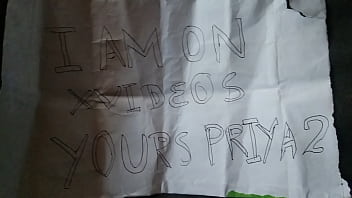 I AM ON
XVIDEOS
YOURS PRIYA2